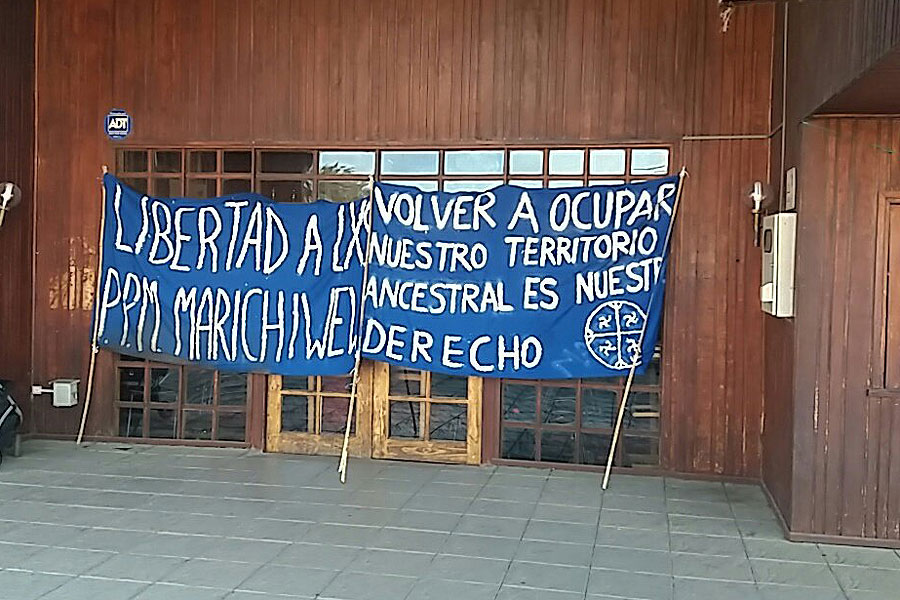 ADT
LIBERTAD A LXS
P.P.M. MARICHIWEW
VOLVER A OCUPAR
NUESTRO TERRITORIO
ANCESTRAL ES NUESTR
DERECHO